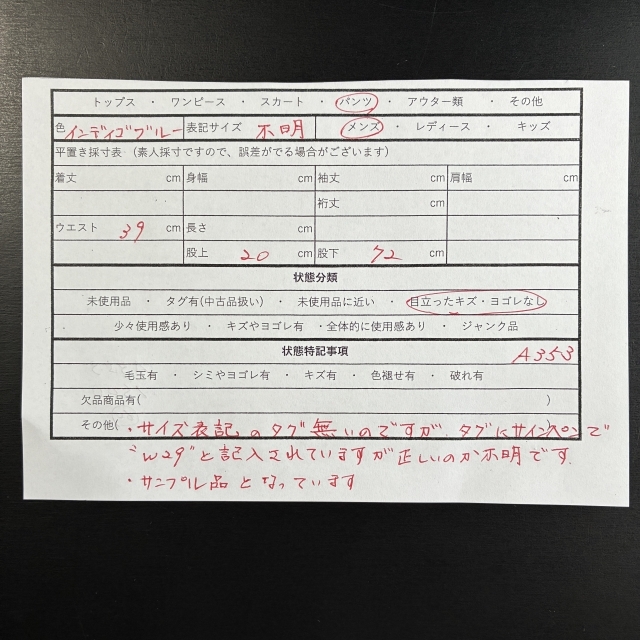 トップス ・ ワンピース ・ スカート ・ パンツ ・ アウター類 ・ その他
色 インディゴブルー 表記サイズ 不明 メンズ ・ レディース ・ キッズ
平置き採寸表 (素人採寸ですので、誤差がでる場合がございます)
着丈 cm 身幅 cm 袖丈 cm 肩幅 cm
裄丈 cm
ウエスト 39 cm 長さ cm
股上 20 cm 股下 72 cm
状態分類
未使用品 ・ タグ有(中古品扱い) ・ 未使用品に近い ・ 目立ったキズ・ヨゴレなし
少々使用感あり ・ キズやヨゴレ有 ・全体的に使用感あり ・ ジャンク品
状態特記事項 A353
毛玉有 ・ シミやヨゴレ有 ・ キズ有 ・ 色褪せ有 ・ 破れ有
欠品商品有( )
その他( ・サイズ表記のタグ無いのですが、タグにサインペンで
"W29"と記入されていますが正しいのか不明です。
・サンプル品となっています